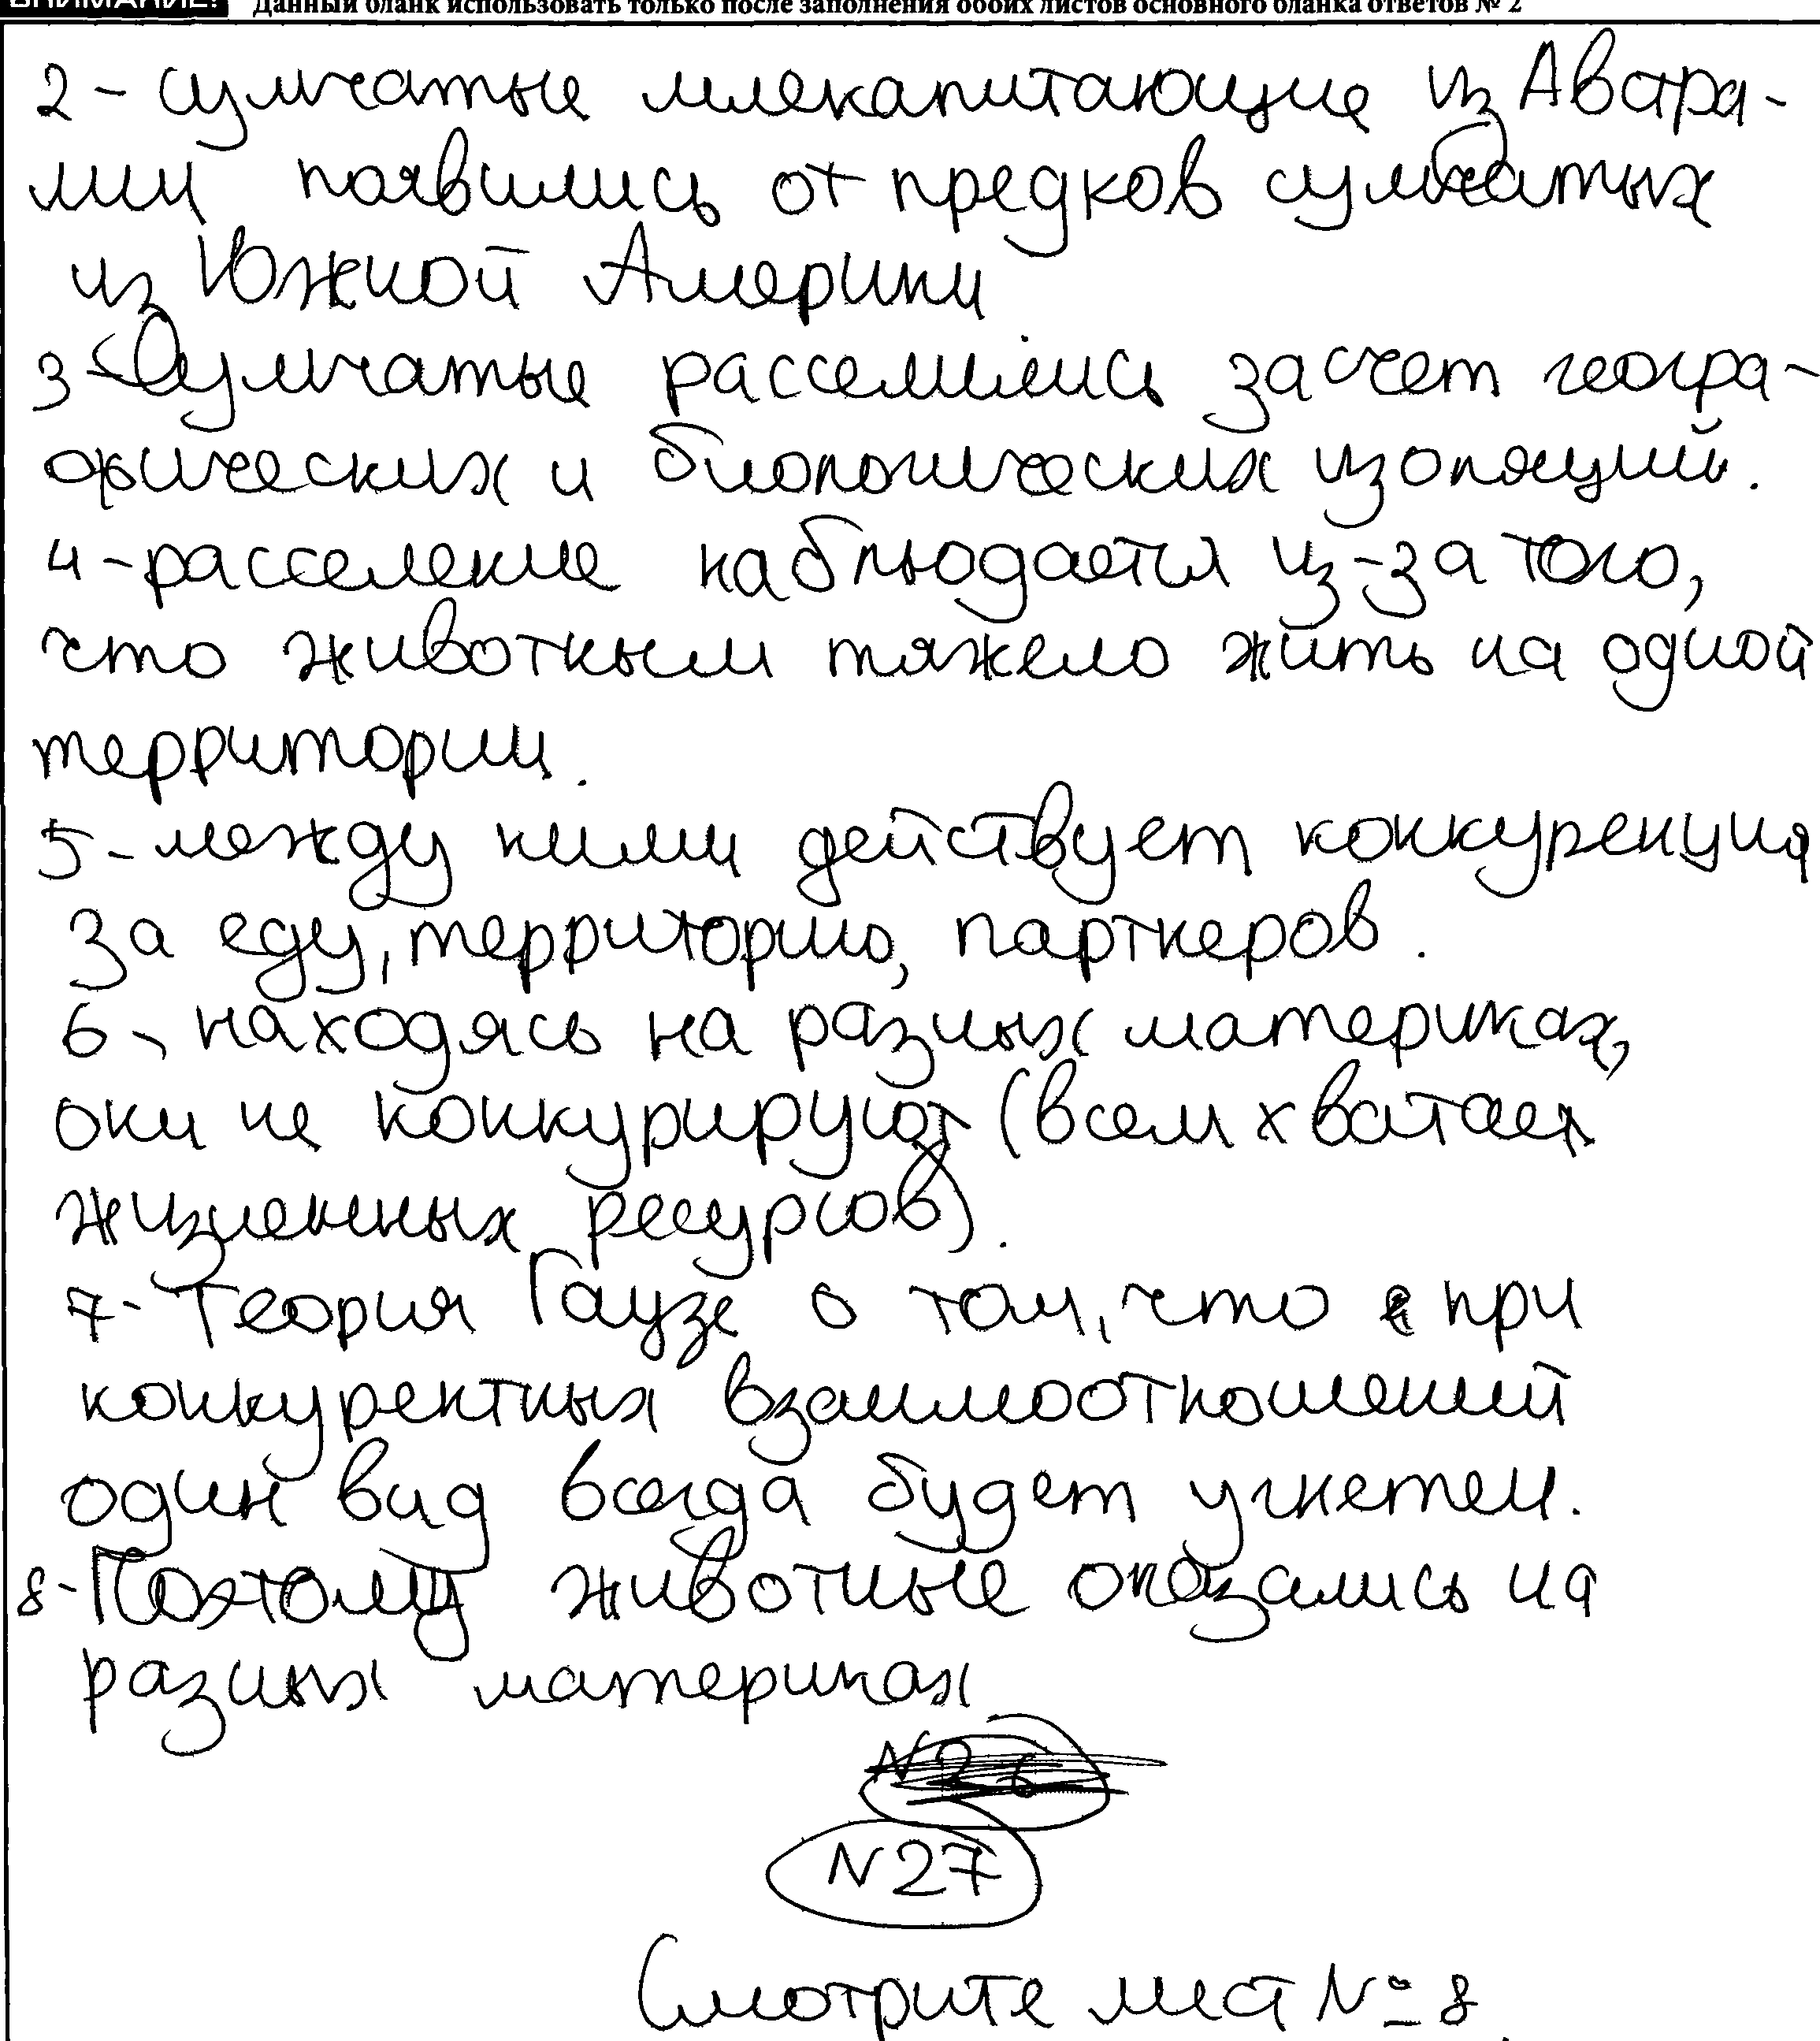 ВНИМАНИЕ! Данный бланк использовать только после заполнения обоих листов основного бланка ответов № 2
2 - сумчатые млекапитающие из Австра-
лии появились от предков сумчатых
из Южной Америки
3 - Сумчатые расселились за счет геогра-
фических и биологических изоляций.
4 - расселение наблюдается из-за того,
что животным тяжело жить на одной
территории.
5 - между ними действует конкуренция
за еду, территорию, партнеров.
6 - находясь на разных материках,
они не конкурируют (всем хватает
жизненных ресурсов).
7 - Теория Гаузе о том, что при
конкурентных взаимоотношений
один вид всегда будет угнетен.
8 - Поэтому животные оказались на
разных материках
N26
N27
Смотрите лист № 8.